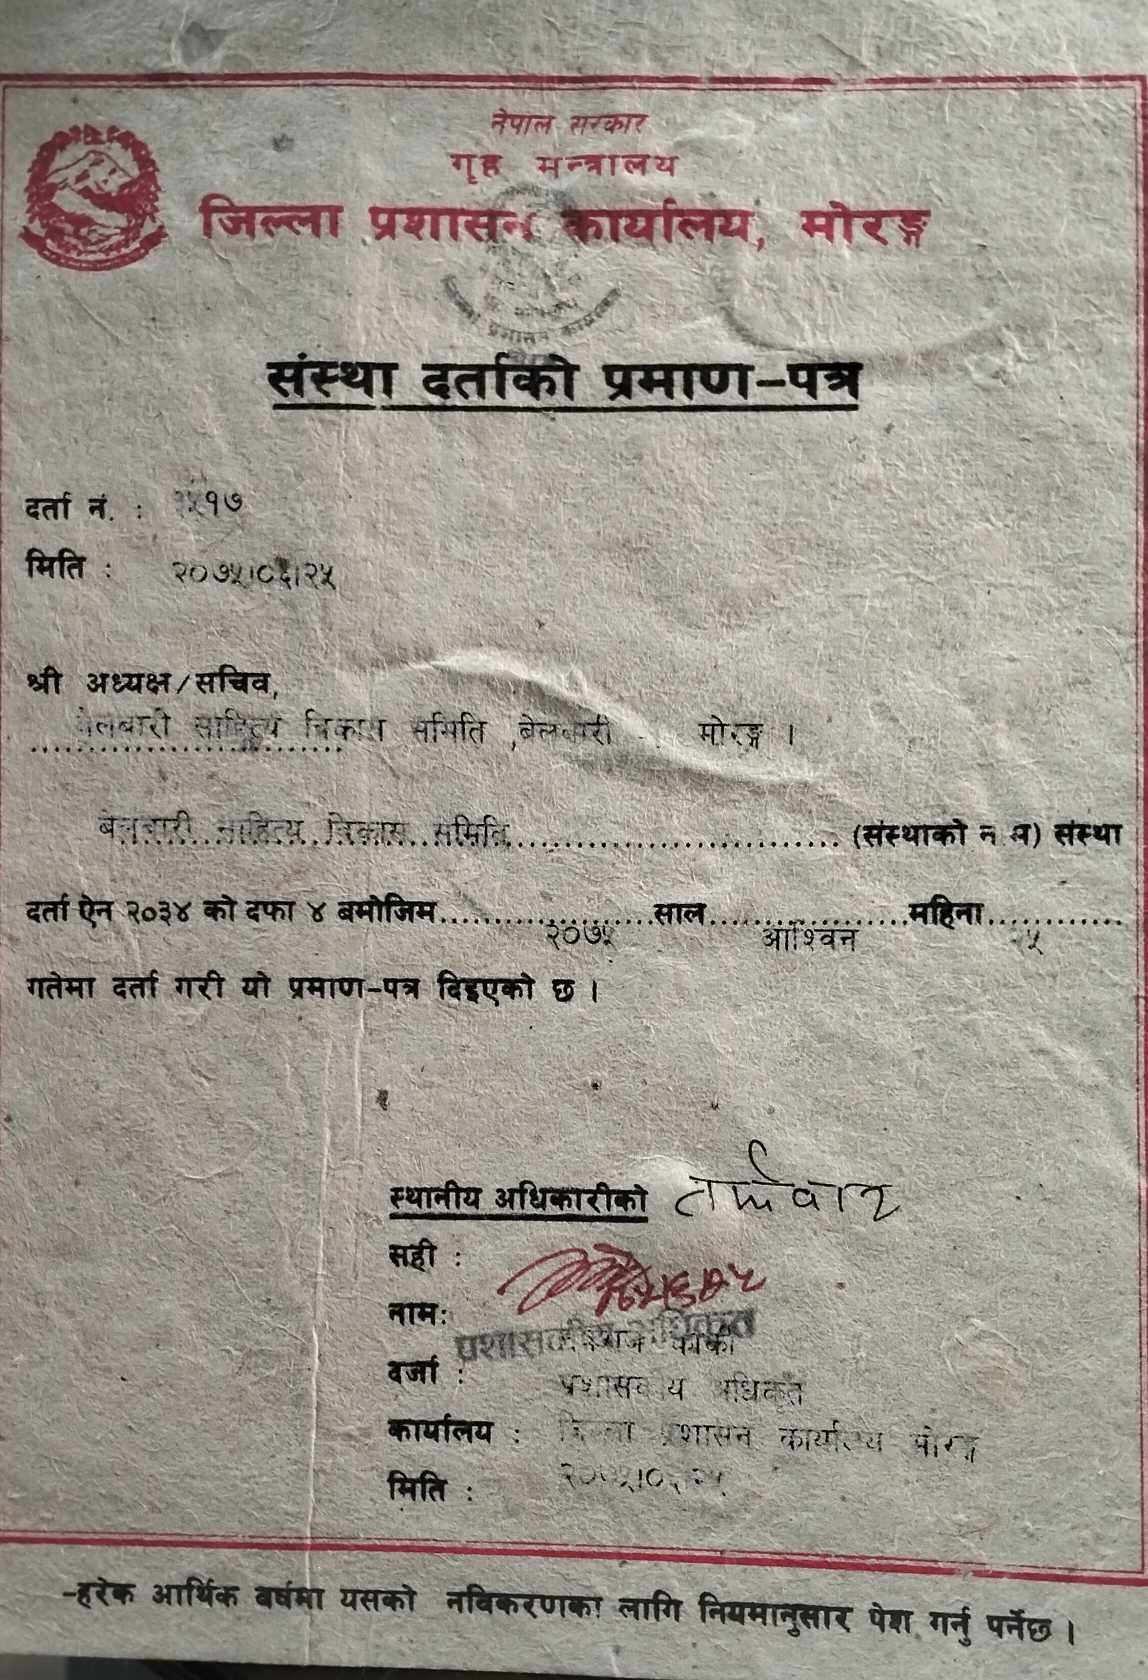 नेपाल सरकार
गृह मन्त्रालय
जिल्ला प्रशासन कार्यालय, मोरङ्ग
संस्था दर्ताको प्रमाण-पत्र
दर्ता नं. : १७
मिति : २०७५।०६।२५
श्री अध्यक्ष/सचिव,
बेलबारी साहित्य विकास समिति ,बेलबारी - मोरङ्ग ।
बेलबारी साहित्य विकास समिति (संस्थाको नाम) संस्था
दर्ता ऐन २०३४ को दफा ४ बमोजिम २०७५ साल आश्विन महिना २५
गतेमा दर्ता गरी यो प्रमाण-पत्र दिइएको छ ।
स्थानीय अधिकारीको
सही :
नाम: कार्की
प्रशासकीय अधिकृत
दर्जा : प्रशासकीय अधिकृत
कार्यालय : जिल्ला प्रशासन कार्यालय मोरङ्ग
मिति : २०७५।०६।२५
-हरेक आर्थिक बर्षमा यसको नविकरणका लागि नियमानुसार पेश गर्नु पर्नेछ ।